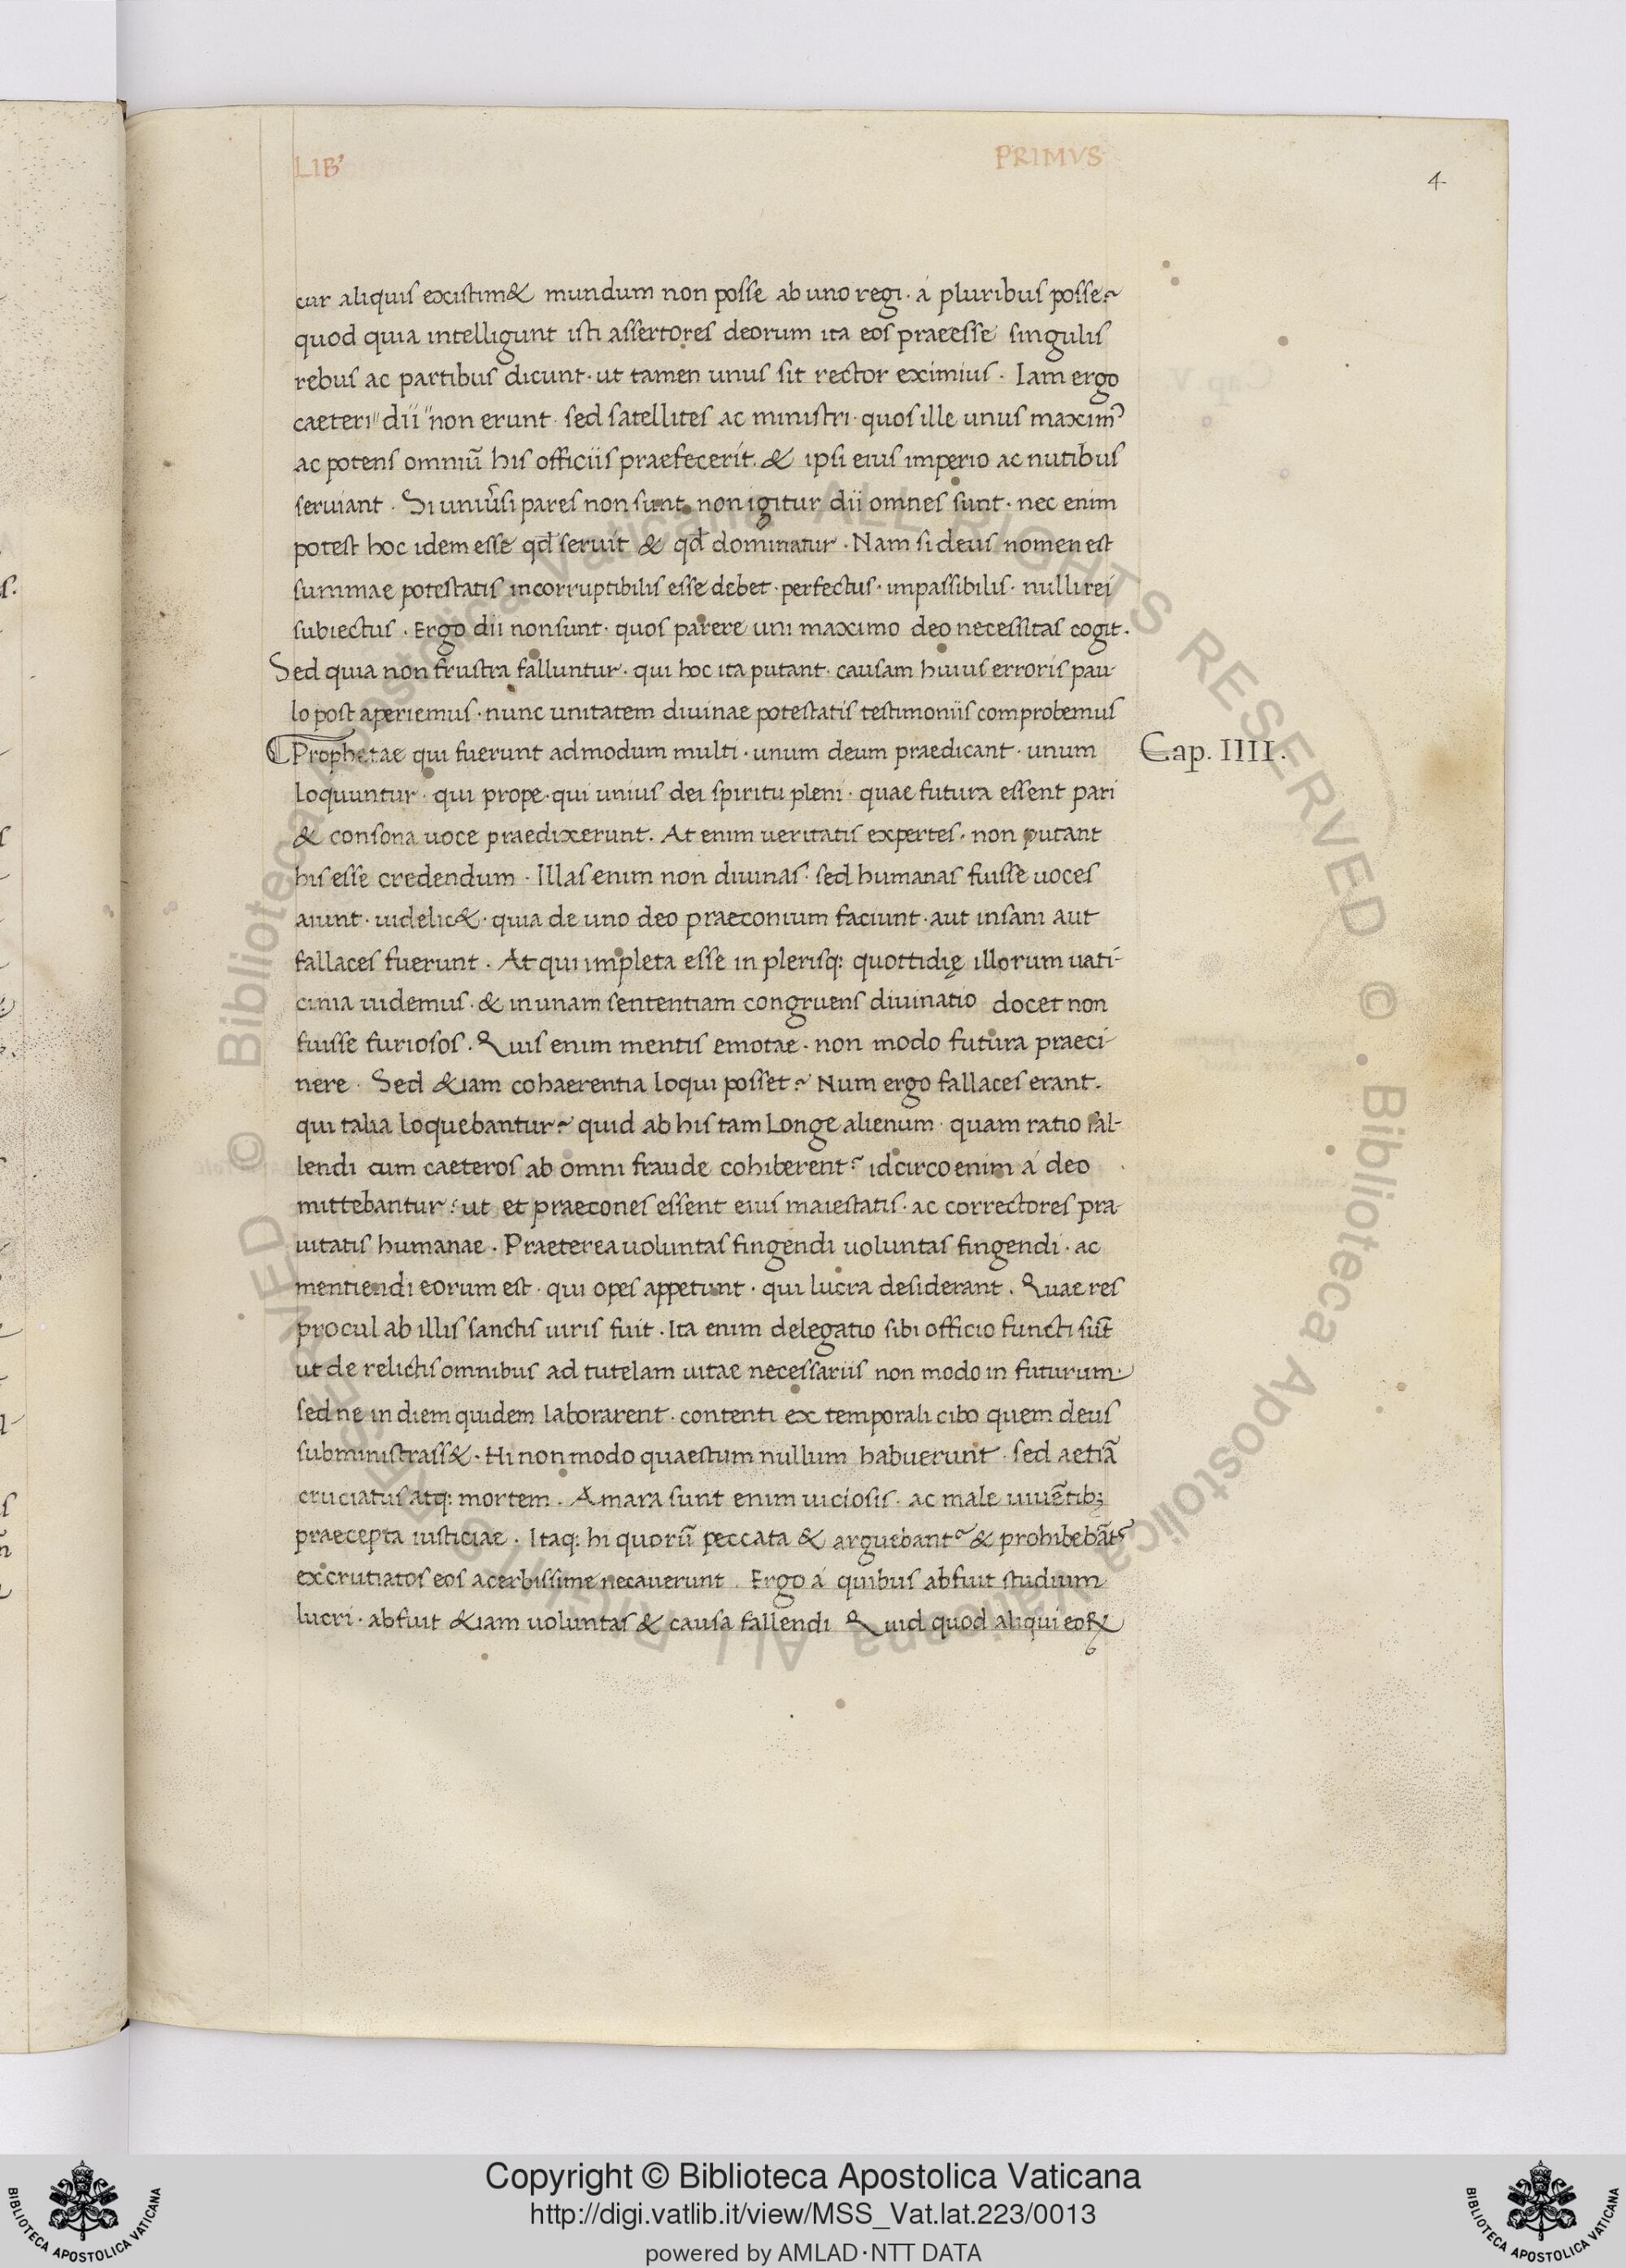 LIB’ PRIMVS
4
cur aliquis existim& mundum non posse ab uno regi · á pluribus posse?
quod quia intelligunt isti assertores deorum ita eos praeesse singulis
rebus ac partibus dicunt · ut tamen unus sit rector eximius · Iam ergo
caeteri " dii " non erunt · sed satellites ac ministri · quos ille unus maximꝰ
ac potens omniū his officiis praefecerit · & ipsi eius imperio ac nutibus
seruiant · Si uniu̅si pares non sunt non igitur dii omnes sunt · nec enim
potest hoc idem esse qđ seruit & qđ dominatur · Nam si deus nomen est
summae potestatis incorruptibilis esse debet · perfectus · impassibilis · nulli rei
subiectus · Ergo dii non sunt · quos parere uni maximo deo necessitas cogit ·
Sed quia non frustra falluntur · qui hoc ita putant · causam huius erroris pau-
lo post aperiemus · nunc unitatem diuinae potestatis testimoniis comprobemus
Prophetae qui fuerunt admodum multi · unum deum praedicant · unum
Cap. IIII.
loquuntur · qui prope · qui unius dei spiritu pleni · quae futura essent pari
& consona uoce praedixerunt. At enim ueritatis expertes · non putant
his esse credendum · Illas enim non diuinas · sed humanas fuisse uoces
aiunt · uidelic& · quia de uno deo praeconium faciunt · aut insani aut
fallaces fuerunt · At qui impleta esse in plerisq: quottidię illorum uati-
cinia uidemus · & in unam sententiam congruens diuinatio docet non
fuisse furiosos · Quis enim mentis emotae · non modo futura praeci-
nere · Sed &iam cohaerentia loqui posset? Num ergo fallaces erant ·
qui talia loquebantur? quid ab his tam longe alienum · quam ratio fal-
lendi cum caeteros ab omni fraude cohiberent? idcirco enim á deo
mittebantur · ut et praecones essent eius maiestatis · ac correctores pra-
uitatis humanae · Praeterea uoluntas fingendi uoluntas fingendi · ac
mentiendi eorum est · qui opes appetunt · qui lucra desiderant · Quae res
procul ab illis sanctis uiris fuit · Ita enim delegatio sibi officio functi sūt
ut de relictis omnibus ad tutelam uitae necessariis non modo in futurum ·
sed ne in diem quidem laborarent · contenti ex temporali cibo quem deus
subministrass& · Hi non modo quaestum nullum habuerunt · sed aetiā
cruciatus atq: mortem · Amara sunt enim uiciosis · ac male uiuētib;
praecepta iusticiae · Itaq: hi quorū peccata & arguebant᷑ & prohibebāt᷑
excrutiatos eos acerbissime necauerunt · Ergo á quibus abfuit studium
lucri · abfuit &iam uoluntas & causa fallendi Quid quod aliqui eoꝝ
Copyright © Biblioteca Apostolica Vaticana
http://digi.vatlib.it/view/MSS_Vat.lat.223/0013
powered by AMLAD·NTT DATA
BIBLIOTECA APOSTOLICA VATICANA
BIBLIOTECA APOSTOLICA VATICANA